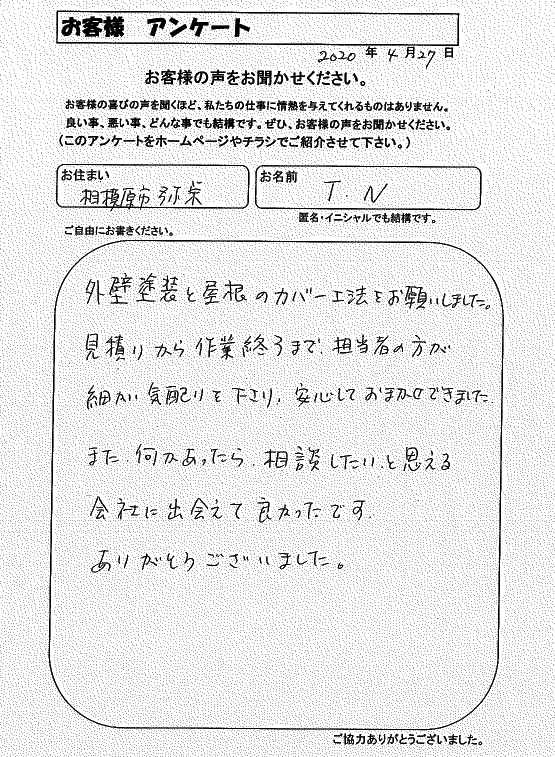 お客様 アンケート
2020 年 4 月 27 日
お客様の声をお聞かせください。
お客様の喜びの声を聞くほど、私たちの仕事に情熱を与えてくれるものはありません。
良い事、悪い事、どんな事でも結構です。ぜひ、お客様の声をお聞かせください。
(このアンケートをホームページやチラシでご紹介させて下さい。)
お住まい
相模原市弥栄
お名前
T. N
匿名・イニシャルでも結構です。
ご自由にお書きください。
外壁塗装と屋根のカバー工法をお願いしました。
見積りから作業終了まで、担当者の方が
細かい気配りを下さり、安心しておまかせできました
また、何かあったら、相談したい、と思える
会社に出会えて良かったです。
ありがとうございました。
ご協力ありがとうございました。